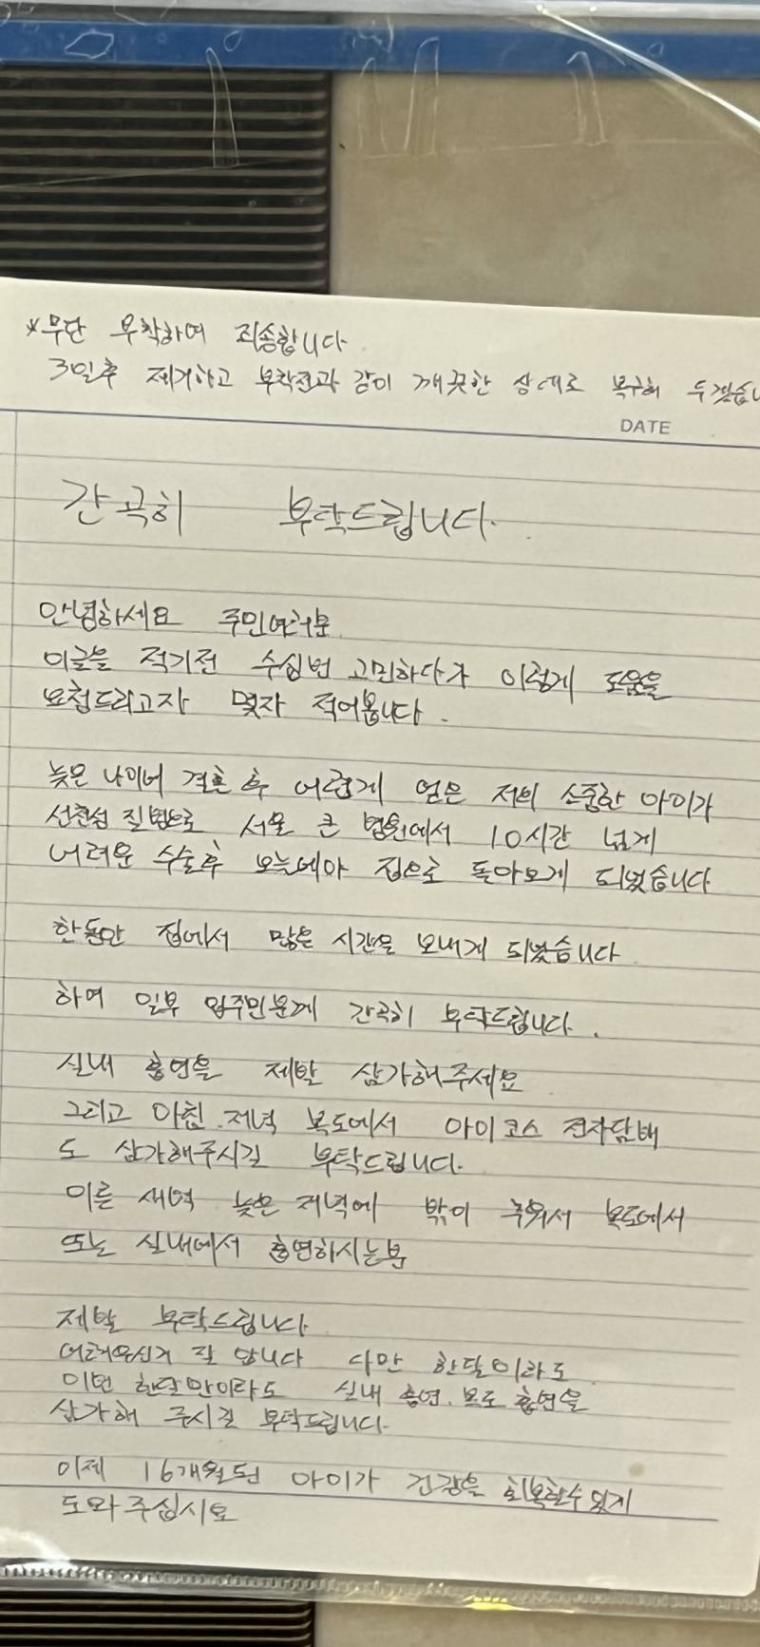 *무단 부착하여 죄송합니다
3일후 제거하고 부착전과 같이 깨끗한 상태로 복구해 두겠습니
DATE
간곡히 부탁드립니다.
안녕하세요 주민여러분
이글을 적기전 수십번 고민하다가 이렇게 도움을
요청드리고자 몇자 적어봅니다.
늦은 나이에 결혼 후 어렵게 얻은 저희 소중한 아이가
선천성 질병으로 서울 큰 병원에서 10시간 넘게
어려운 수술후 오늘에야 집으로 돌아오게 되었습니다
한동안 집에서 많은 시간을 보내게 되었습니다
하여 일부 입주민분께 간곡히 부탁드립니다.
실내 흡연을 제발 삼가해주세요
그리고 아침.저녁 복도에서 아이코스 전자담배
도 삼가해주시길 부탁드립니다.
이른 새벽 늦은 저녁에 밖이 추워서 복도에서
또는 실내에서 흡연하시는분
제발 부탁드립니다
어려우신거 잘 압니다 다만 한달이라도
이번 한달만이라도 실내 흡연.복도 흡연을
삼가해 주시길 부탁드립니다.
이제 16개월된 아이가 건강을 회복할수있게
도와주십시요